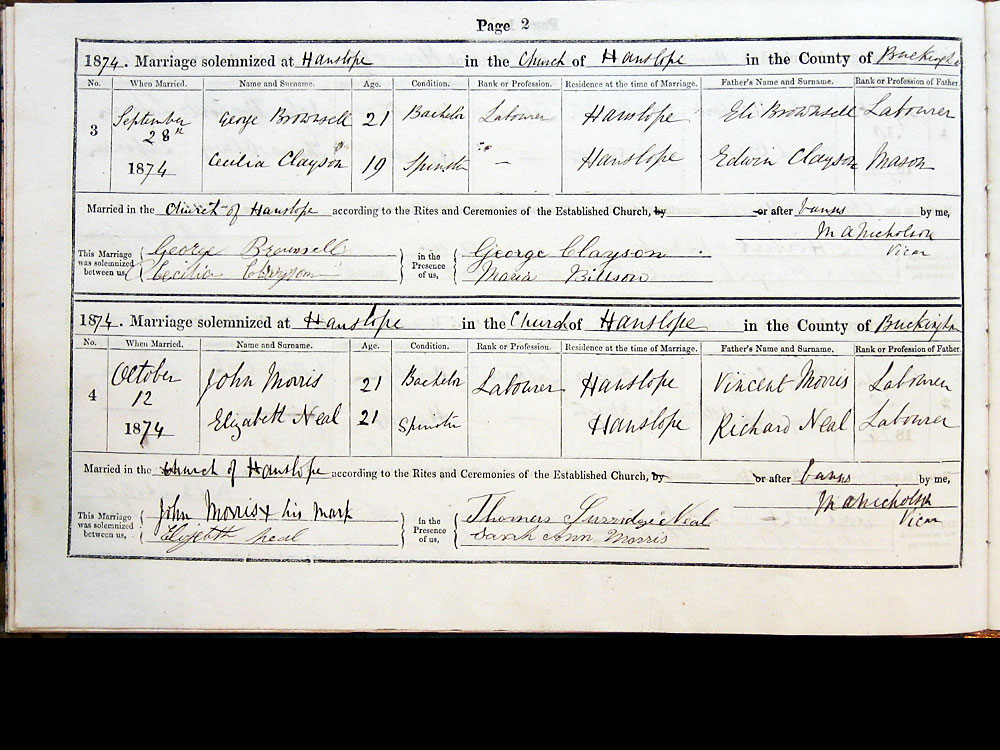 Page 2
1874. Marriage solemnized at Hanslope in the Church of Hanslope in the County of
No. When Married. Name and Surname. Age. Condition. Rank or Profession. Residence at the time of Marriage. Father's Name and Surname. Rank or Profession of Father.
3 September 28th 1874 George Brownsell 21 Bachelor Labourer Hanslope Eli Brownsell Labourer
Cecilia Clayson 19 Spinster — Hanslope Edwin Clayson Mason
Married in the Church of Hanslope according to the Rites and Ceremonies of the Established Church, by or after banns by me,
M A Nicholson
Vicar
This Marriage was solemnized between us, George Brownsell in the Presence of us, George Clayson
Cecilia Clayson Maria Billson
1874. Marriage solemnized at Hanslope in the Church of Hanslope in the County of Buckingham
No. When Married. Name and Surname. Age. Condition. Rank or Profession. Residence at the time of Marriage. Father's Name and Surname. Rank or Profession of Father.
4 October 12 1874 John Morris 21 Bachelor Labourer Hanslope Vincent Morris Labourer
Elizabeth Neal 21 Spinster Hanslope Richard Neal Labourer
Married in the Church of Hanslope according to the Rites and Ceremonies of the Established Church, by or after banns by me,
M A Nicholson
Vicar
This Marriage was solemnized between us, John Morris x his mark in the Presence of us, Thomas Surridge Neal
Elizabeth Neal Sarah Ann Morris